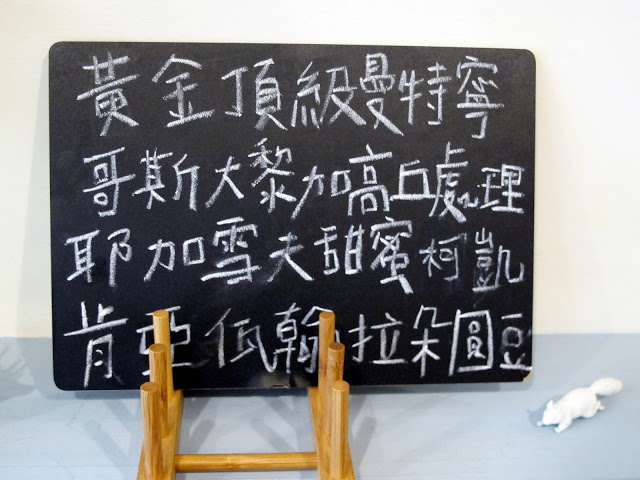 黃金頂級曼特寧
哥斯大黎加高丘處理
耶加雪夫甜蜜柯凱
肯亞伍翰拉朵圓豆